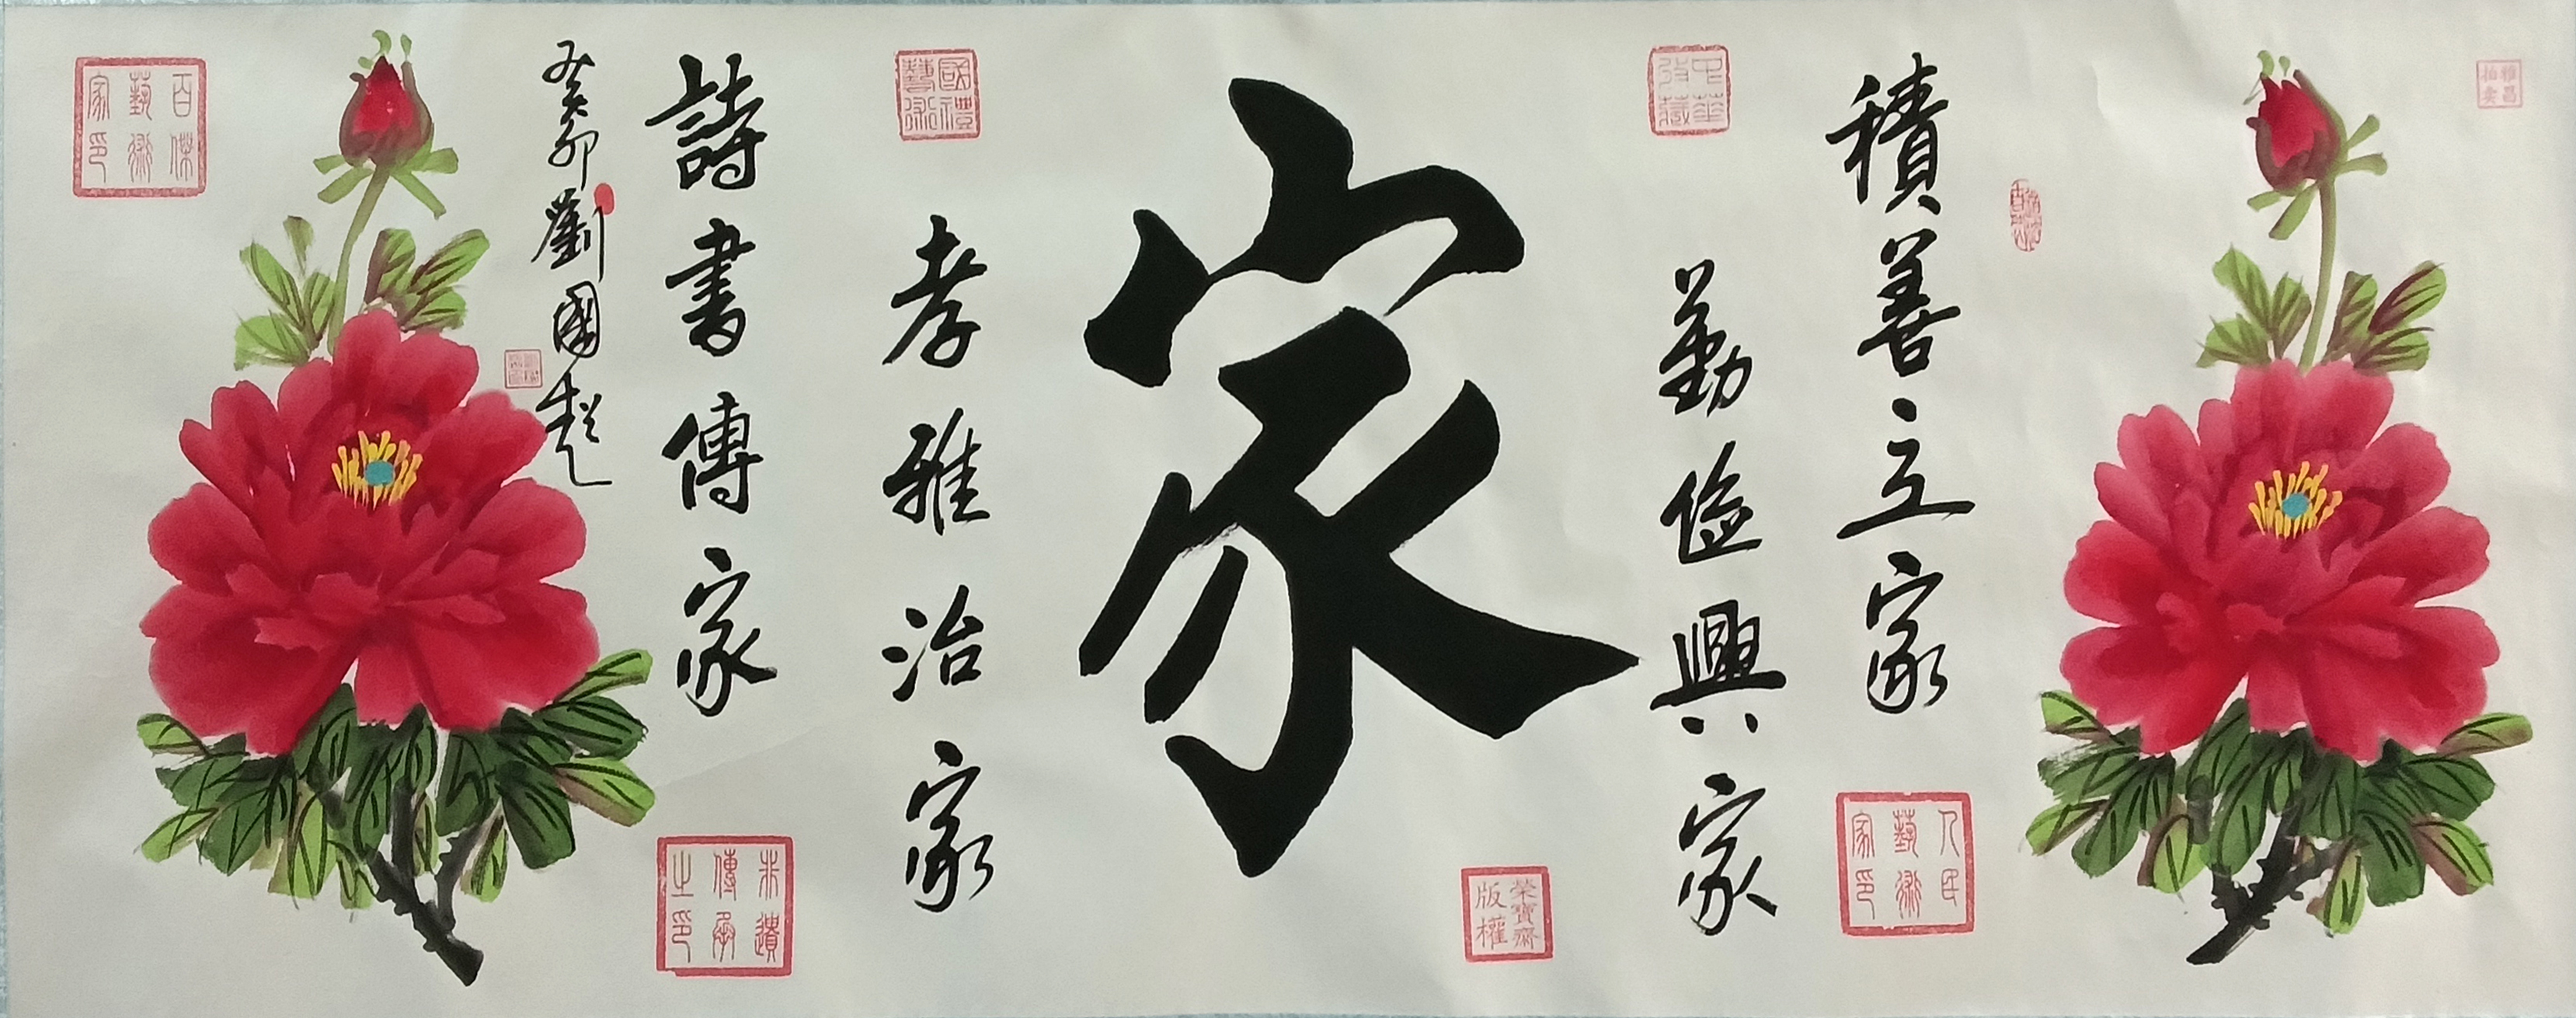 雅昌
拍卖
積善立家
人民
藝術
家印
勤儉興家
中華
收藏
家
榮寶齋
版權
孝雅治家
國禮
藝術
詩書傳家
非遺
傳承
之印
癸卯劉國超
百傑
藝術
家印